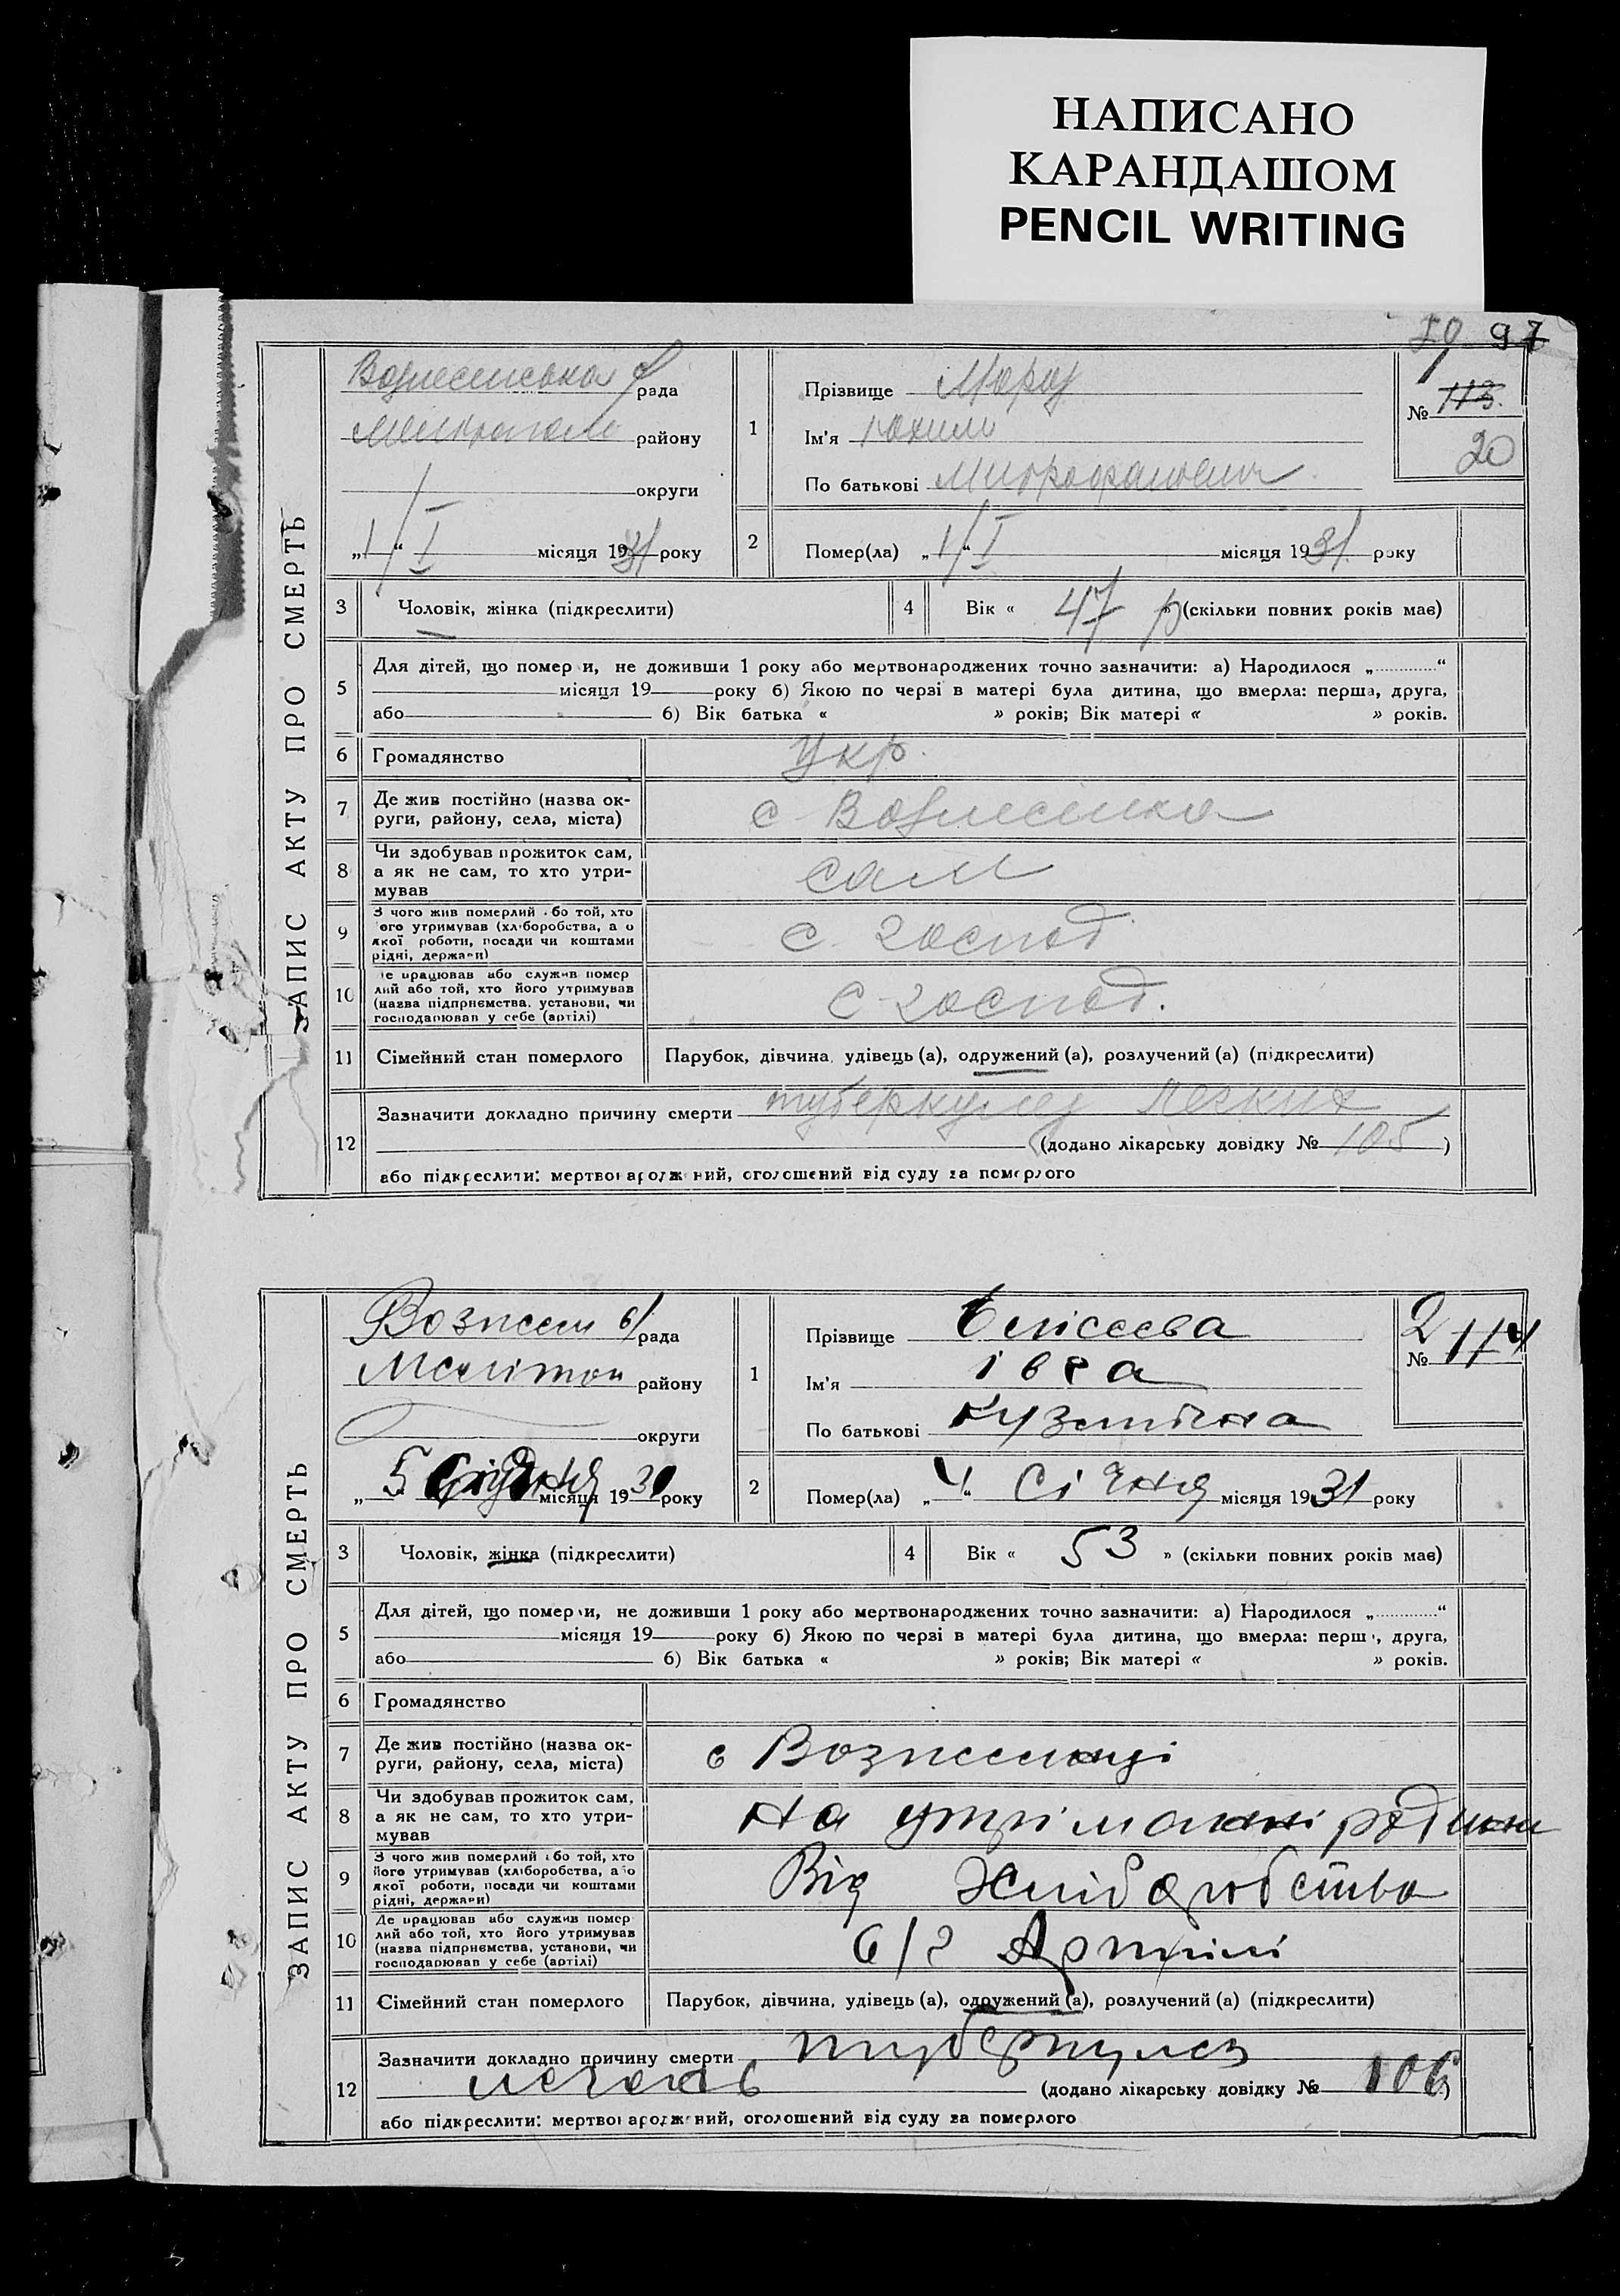 НАПИСАНО
КАРАНДАШОМ
PENCIL WRITING
97
ЗАПИС АКТУ ПРО СМЕРТЬ
Вознесенська рада
району
округи
„1“ I місяця 1931 року
1
Прізвище Мороз
Ім'я
По батькові Митрофанович
№ 113
20
2
Помер(ла) „1“ I місяця 1931 року
3 Чоловік, жінка (підкреслити)
4 Вік « 47 р» (скільки повних років має)
5
Для дітей, що помер и, не доживши 1 року або мертвонароджених точно зазначити: а) Народилося „ “
місяця 19 року б) Якою по черзі в матері була дитина, що вмерла: перша, друга,
або б) Вік батька « » років; Вік матері « » років.
6 Громадянство Укр.
7 Де жив постійно (назва ок-
руги, району, села, міста) с Вознесенка
8 Чи здобував прожиток сам,
а як не сам, то хто утри-
мував сам
9 З чого жив померлий або той, хто
його утримував (хліборобства, або
якої роботи, посади чи коштами
рідні, держави) с. господ.
10 Де працював або служив помер
лий або той, хто його утримував
(назва підприємства, установи, чи
господарював у себе (артілі) с-господ.
11 Сімейний стан померлого Парубок, дівчина, удівець (а), одружений (а), розлучений (а) (підкреслити)
12
Зазначити докладно причину смерти туберкулез легких
(додано лікарську довідку № 105)
або підкреслити: мертвонароджений, оголошений від суду за померлого
ЗАПИС АКТУ ПРО СМЕРТЬ
Вознесен с/рада
Мелітоп району
округи
„5“ Січня місяця 1931 року
1
Прізвище Єлісєєва
Ім'я Івга
По батькові Кузмівна
2
№ 114
2
Помер(ла) „4“ Січня місяця 1931 року
3 Чоловік, жінка (підкреслити)
4 Вік « 53 » (скільки повних років має)
5
Для дітей, що померли, не доживши 1 року або мертвонароджених точно зазначити: а) Народилося „ “
місяця 19 року б) Якою по черзі в матері була дитина, що вмерла: перш , друга,
або б) Вік батька « » років; Вік матері « » років.
6 Громадянство
7 Де жив постійно (назва ок-
руги, району, села, міста) с Вознесенці
8 Чи здобував прожиток сам,
а як не сам, то хто утри-
мував на утріманні родини
9 З чого жив померлий або той, хто
його утримував (хліборобства, або
якої роботи, посади чи коштами
рідні, держави) Від Хліборобства
10 Де працював або служив помер
лий або той, хто його утримував
(назва підприємства, установи, чи
господарював у себе (артілі) с/г Артілі
11 Сімейний стан померлого Парубок, дівчина, удівець (а), одружений (а), розлучений (а) (підкреслити)
12
Зазначити докладно причину смерти туберкулез
(додано лікарську довідку № 106)
або підкреслити: мертвонароджений, оголошений від суду за померлого